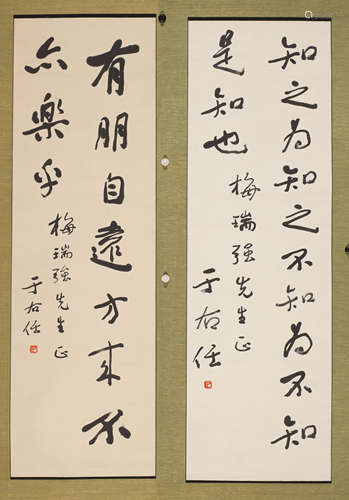 知之为知之不知为不知
是知也
梅瑞强先生正
于右任
有朋自遠方来不
亦樂乎
梅瑞强先生正
于右任